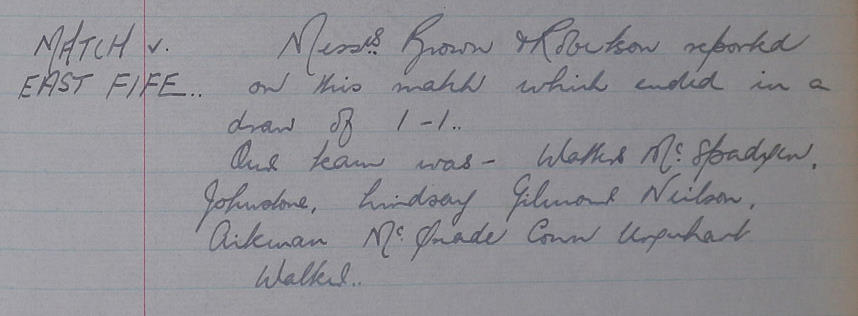 MATCH v.
EAST FIFE..
Messrs Brown & Robertson reported
on this match which ended in a
draw of 1-1..
Our team was - Walker McSpadyen,
Johnstone, Lindsay Gilmour Neilson,
Aikman McQuade Conn Urquhart
Walker..